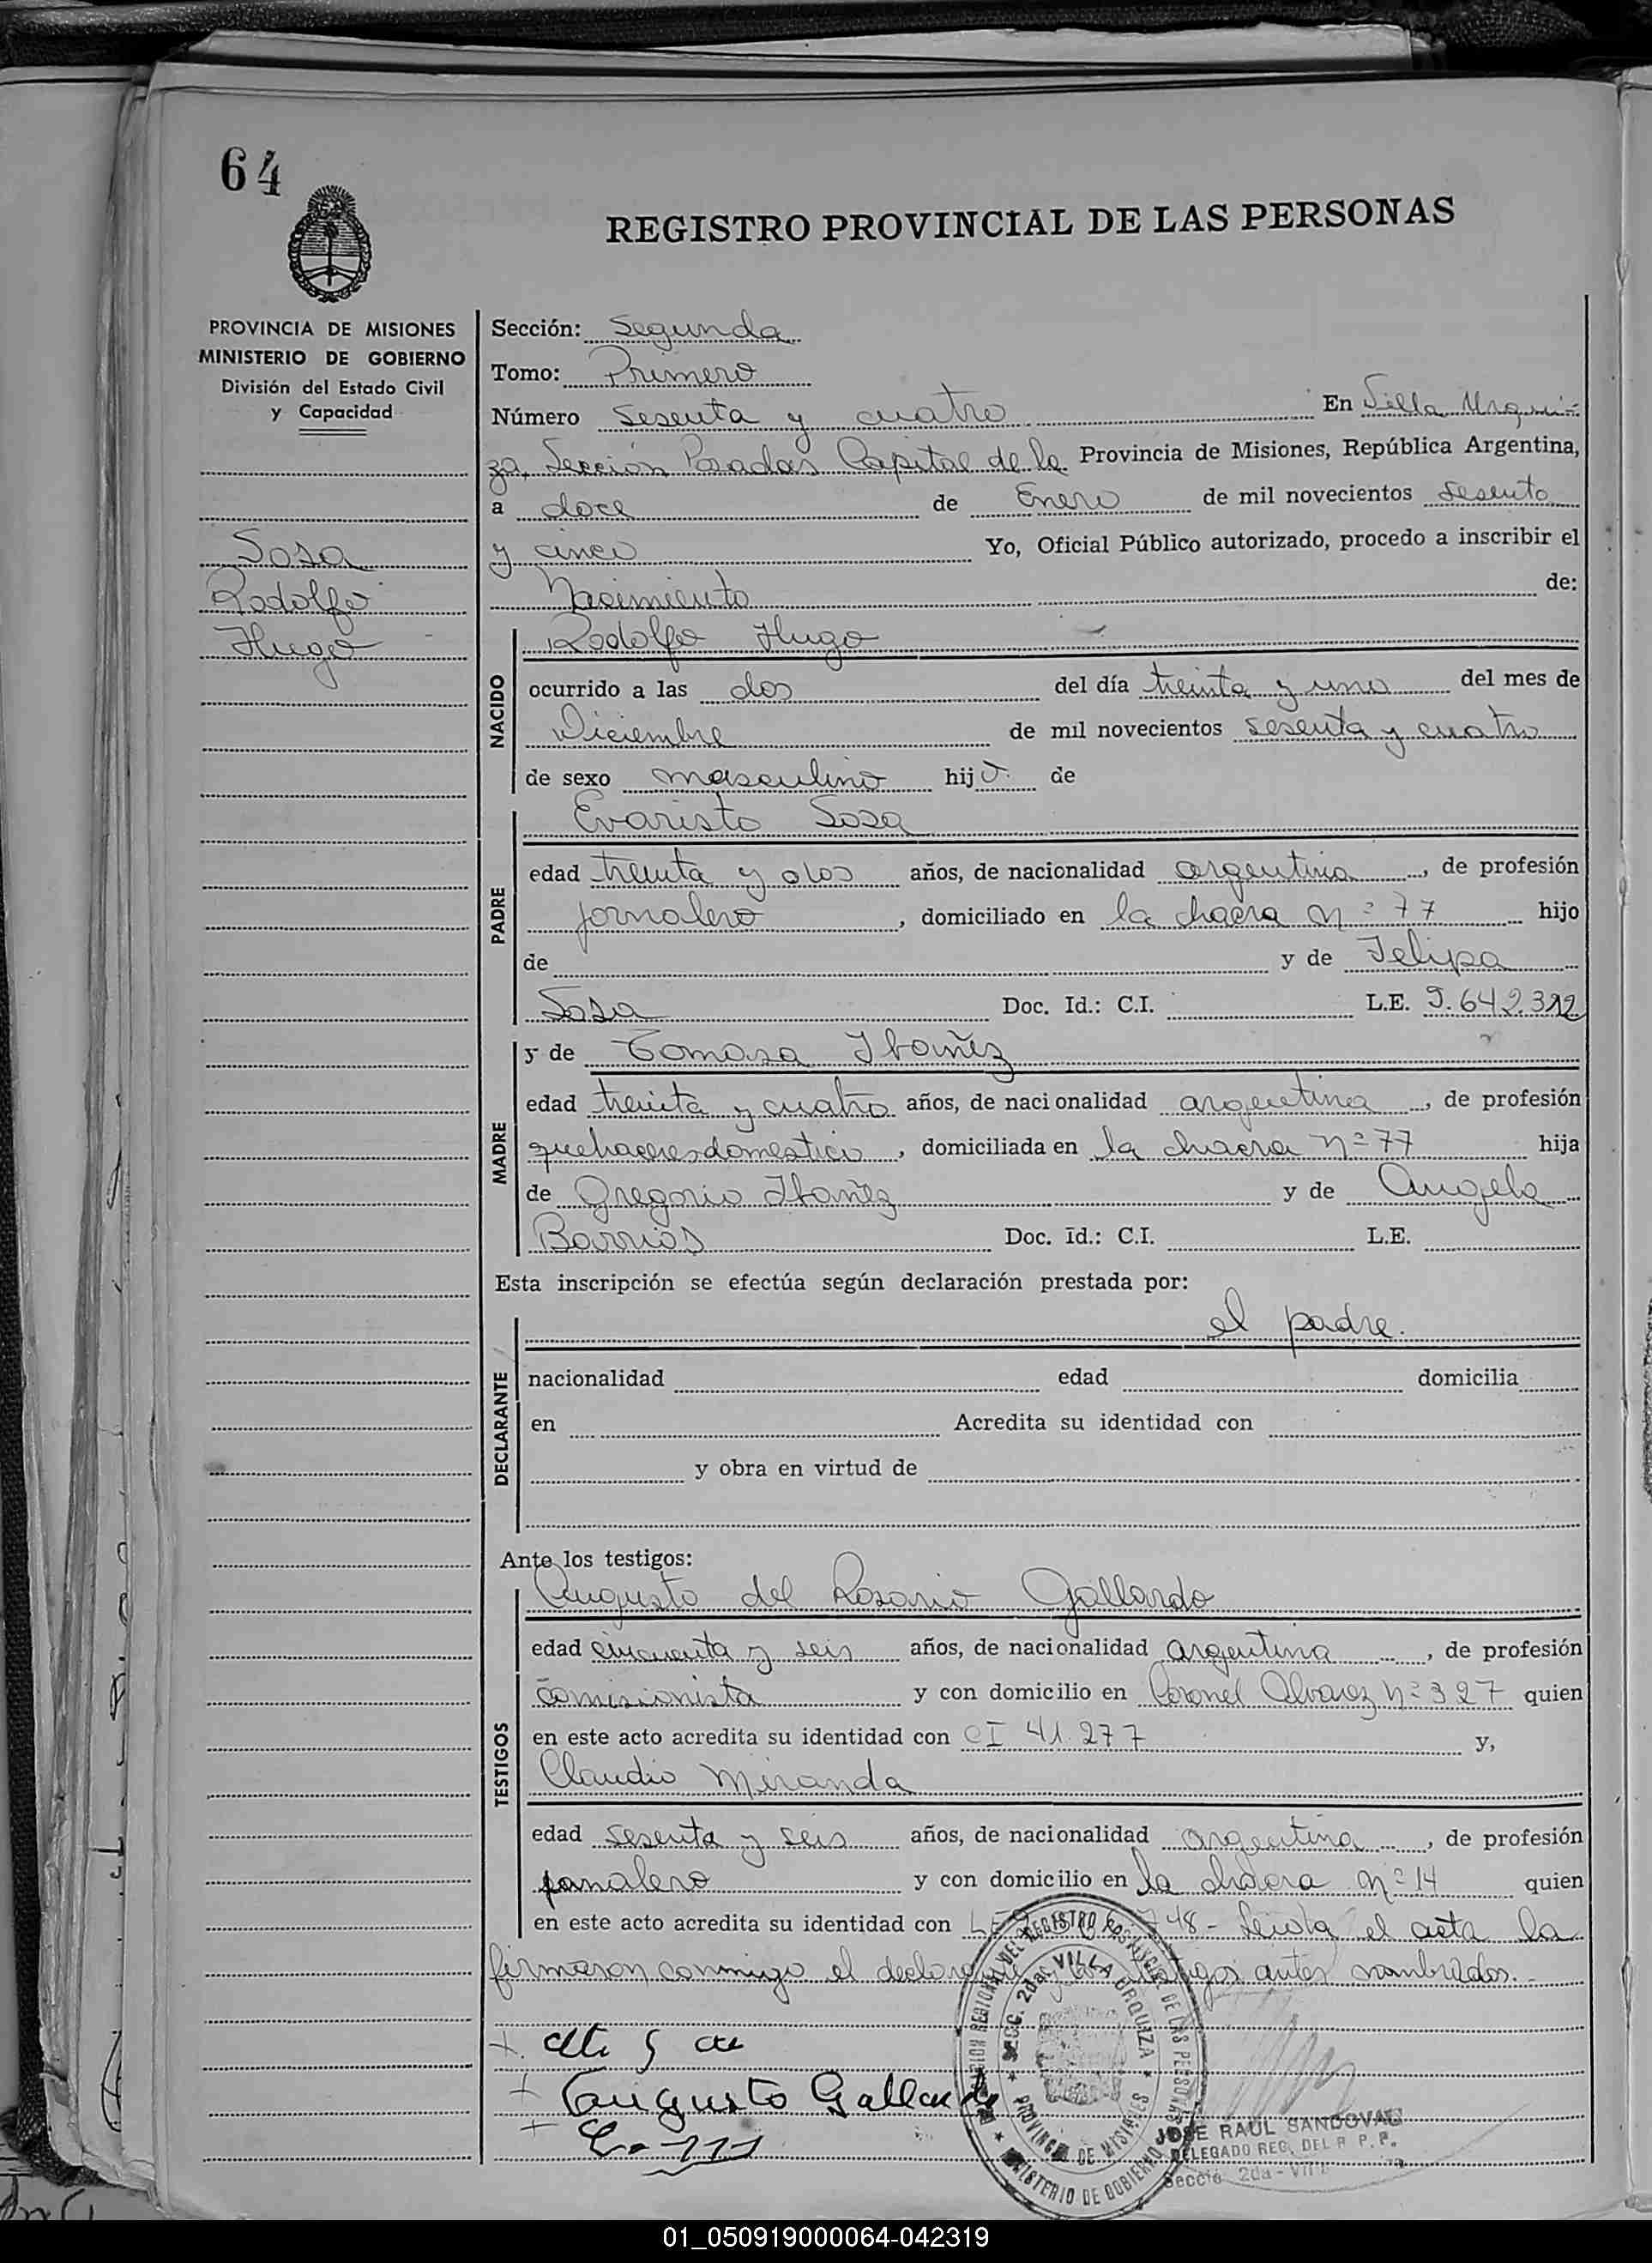 64
REGISTRO PROVINCIAL DE LAS PERSONAS
PROVINCIA DE MISIONES
MINISTERIO DE GOBIERNO
División del Estado Civil
y Capacidad
Sosa
Rodolfo
Hugo
Sección: Segunda
Tomo: Primero
Número Sesenta y cuatro En Villa Urqui=
za, Sección Posadas Capital de la Provincia de Misiones, República Argentina,
a doce de Enero de mil novecientos sesenta
y cinco Yo, Oficial Público autorizado, procedo a inscribir el
Nacimiento de:
NACIDO
Rodolfo Hugo
ocurrido a las dos del día treinta y uno del mes de
Diciembre de mil novecientos sesenta y cuatro
de sexo masculino hijo de
PADRE
Evaristo Sosa
edad treinta y dos años, de nacionalidad argentina, de profesión
jornalero, domiciliado en la chacra nº 77 hijo
de y de Felipa
Sosa Doc. Id.: C.I. L.E.
MADRE
y de Tomasa Ibañez
edad treinta y cuatro años, de nacionalidad argentina, de profesión
quehaceres domestico, domiciliada en la chacra nº 77 hija
de Gregorio Ibañez y de Angela
Barrios Doc. Id.: C.I. L.E.
Esta inscripción se efectúa según declaración prestada por:
DECLARANTE
el padre.
nacionalidad edad domicilia
en Acredita su identidad con
y obra en virtud de
Ante los testigos:
TESTIGOS
Augusto del Rosario Gallardo
edad cincuenta y seis años, de nacionalidad argentina, de profesión
comisionista y con domicilio en Coronel Alvarez nº 327 quien
en este acto acredita su identidad con CI 41.277 y,
Claudio Miranda
edad sesenta y seis años, de nacionalidad argentina, de profesión
jornalero y con domicilio en la chacra nº 14 quien
en este acto acredita su identidad con 748 - Leida el acta la
firmaron conmigo el antes nombrados.
Augusto Gallardo
SECC. 2da. VILLA URQUIZA
PROVINCIA DE MISIONES
MINISTERIO DE GOBIERNO
JOSE RAUL SANDOVAL
DELEGADO REG. DEL R. P. P.
Secció 2da -
01_050919000064-042319